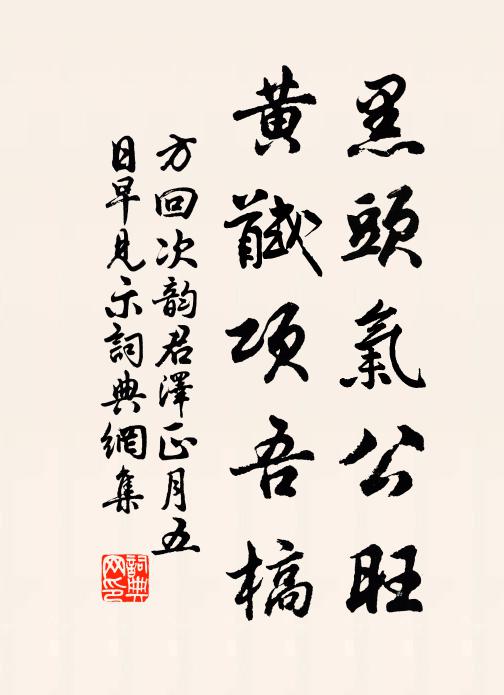 黑頭氣公旺
黃馘項吾槁
方回次韵君澤正月五
日早見示詞典網集
詞典網印